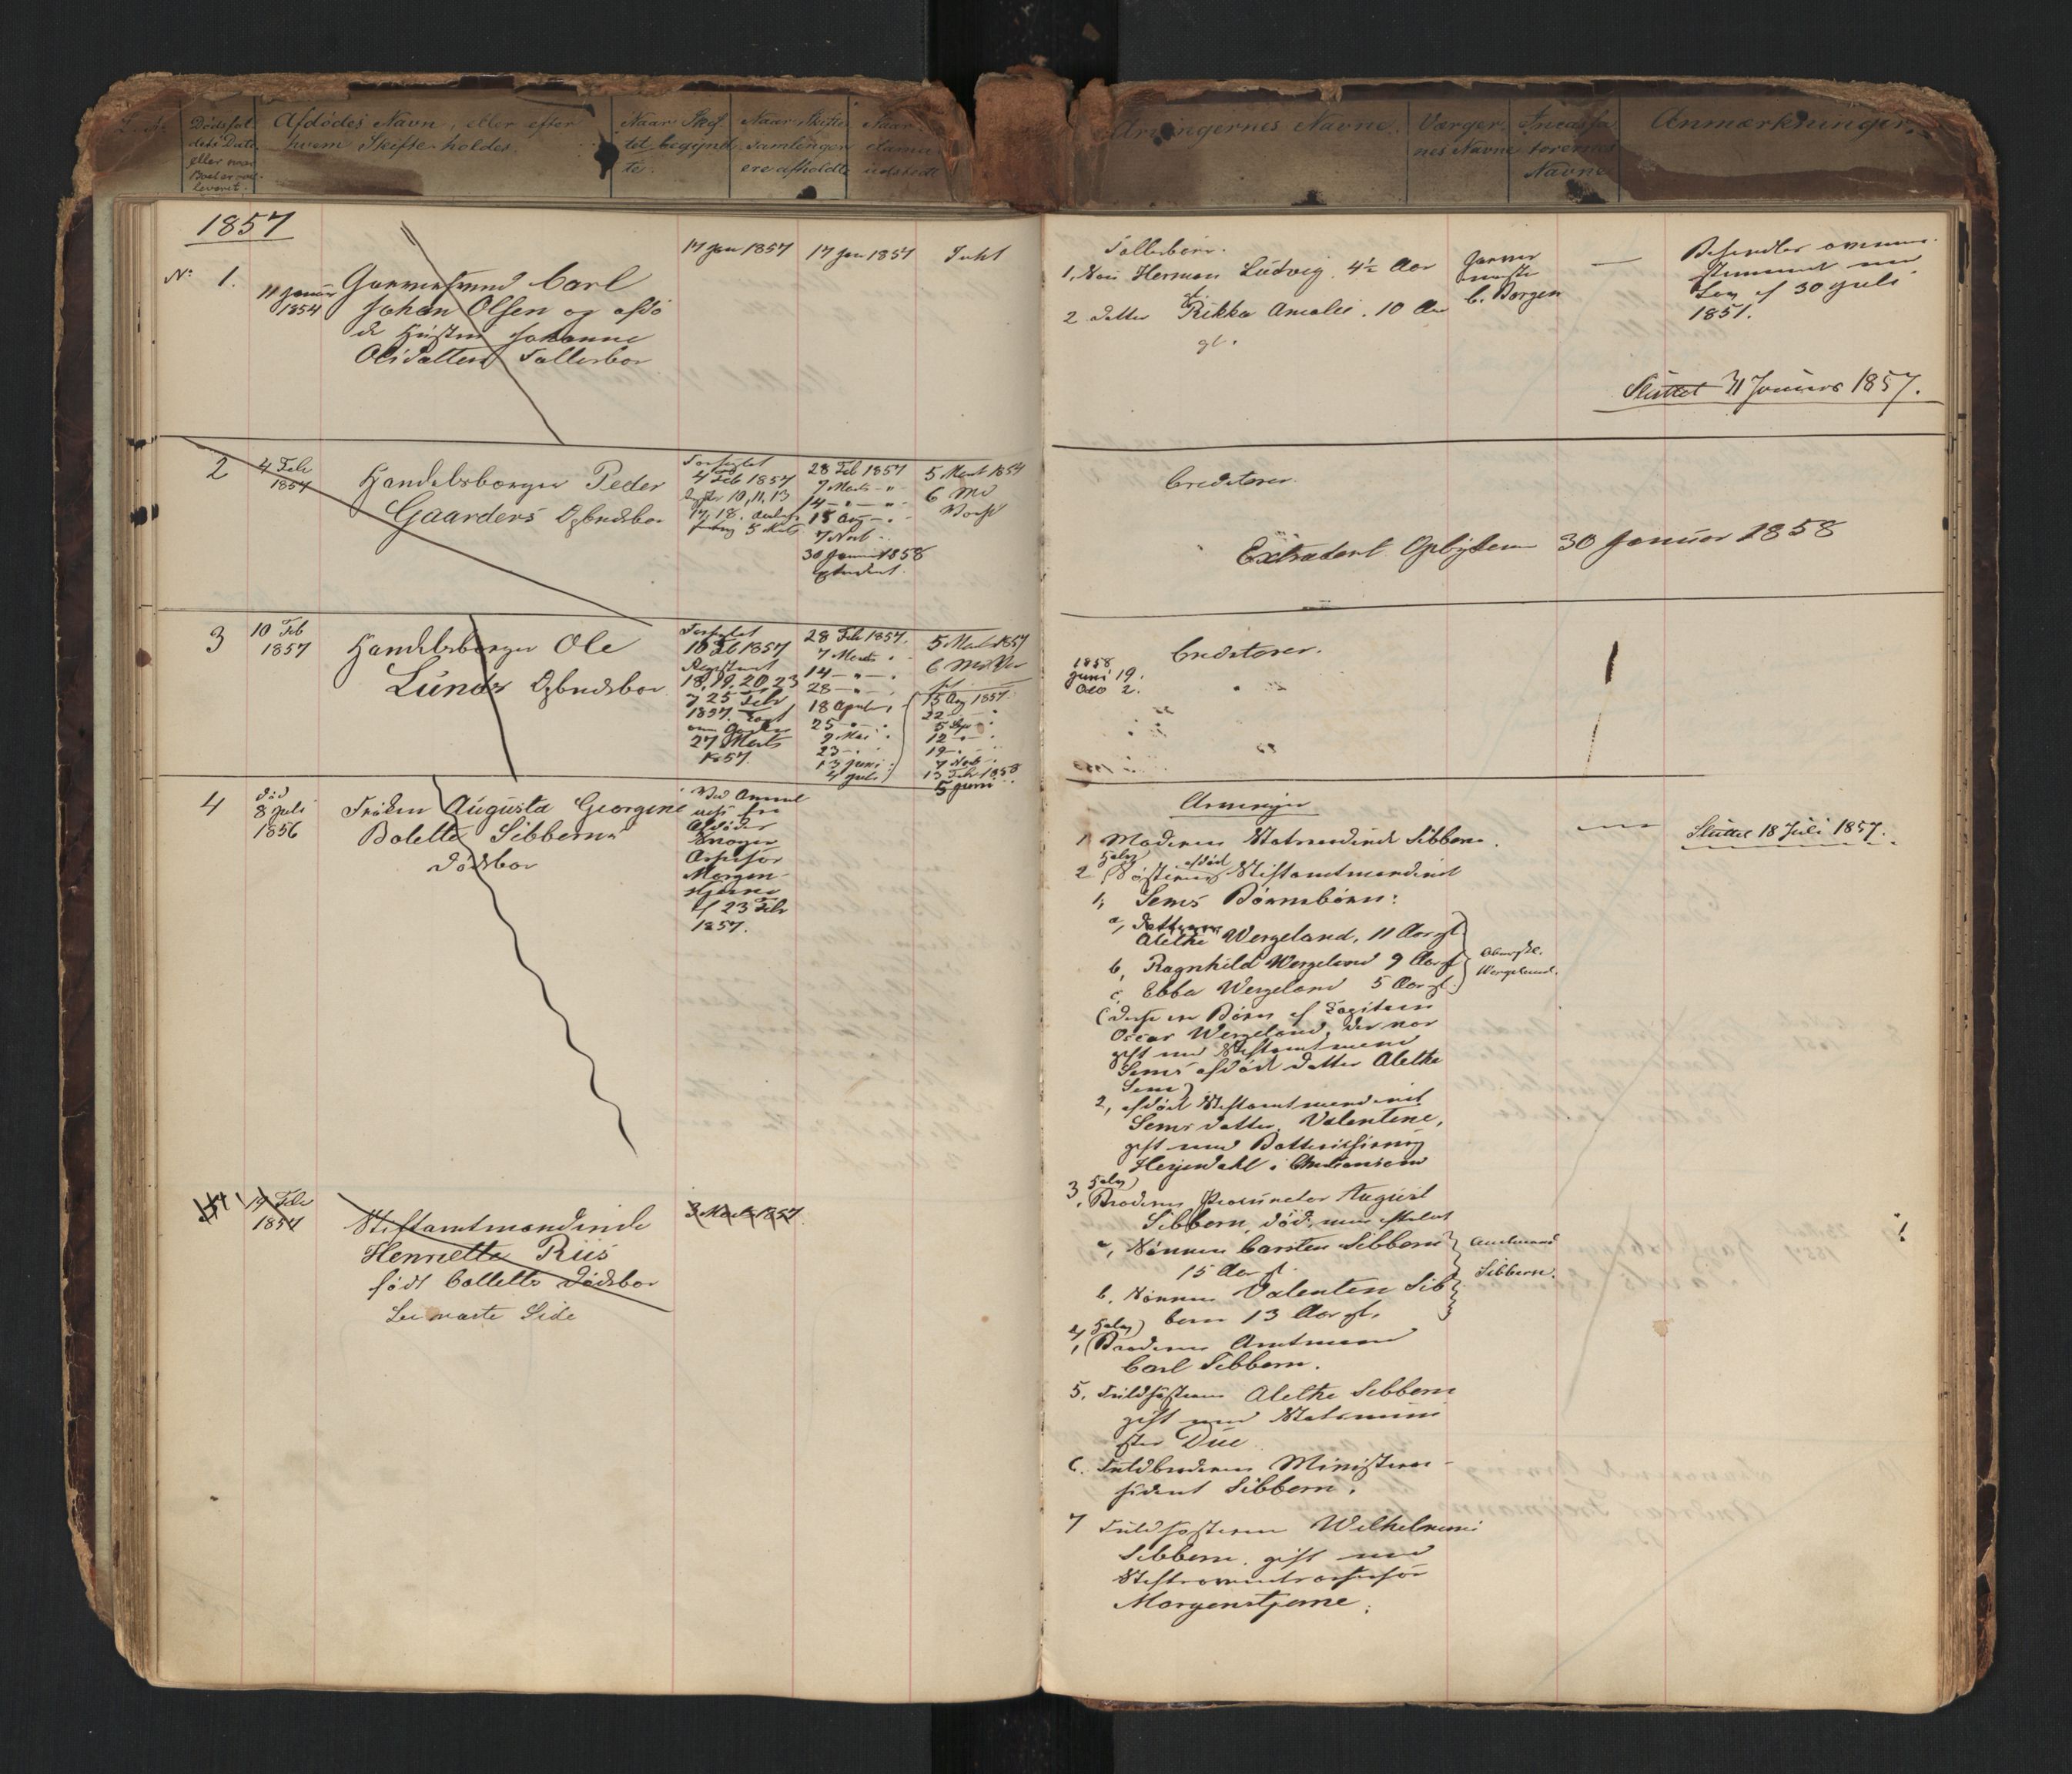 Dødsfal-
dets Dato
eller naar
Boet er over-
leveret.
Afdødes Navn, eller efter
hvem Skifte holdes.
Naar Skif-
tet begynd-
te.
Naar Skifte
samlingen
ere afholdte
Naar
udstædt
Arvingernes Navne.
Værger-
nes Navne
Incassa-
torernes
Navne
Anmærkninger.
1857
No 1.
11 Januar
1854
Garversvend Carl
Johan Olsen og afdø
de Hustru Johanne
Olsdatters Fællesbo
17 Jan 1857
17 Jan 1857
Intet
Fællesbørn.
1, Søn Herman Ludvig 4½ Aar
gl.
2 Datter Rikka Amalie. 10 Aar
gl.
Garver
mester
C. Borgen
—
Behandles overens-
stemmende med
Lov af 30 Juli
1851.
Sluttet 31 Januar 1857.
2
4 Feb
1857
Handelsborger Peder
Gaarders Opbudsbo
Forseglet
4 Feb 1857
10, 11, 13
17, 18.
5 Marts
28 Feb 1857
7 Marts - "
14 - " - "
15 Aug - "
7 Novb - "
30 Januar 1858
Extradert.
5 Marts 1857
6 Md
Varsel
Creditorer.
Extradert Opbyderen 30 Januar 1858
3
10 Feb
1857
Handelsborger Ole
Lunds Opbudsbo
Forseglet
10 Feb 1857
Registreret
18, 19, 20, 23
og 25 Febr
1857.
27 Marts
1857
28 Feb 1857.
7 Marts "
14 - " -
28 - " -
18 April "
25 - " -
9 Mai "
23 - "
13 Juni "
4 Juli
5 Marts 1857
6 Mds Var
sel
15 Aug 1857.
22 -
5 Sep -
12 - " -
19 - " -
7 Novb "
13 Feb 1858
5 Juni
Creditorer.
1858
Juni 19.
Oct 2.
4
død
8 Juli
1856
Frøken Augusta Georgine
Bolette Sibberns
Dødsbo
Ved Anmel
delse fra
Afdødes
Svoger
Assessor
Morgen-
stjerne
af 23 Febr
1857.
Arvinger
1 Moderen Statsraadinde Sibbern.
2 (Halv) Søsteren afdød Stiftamtmandinde
1, Sems Børnebørn:
a, Datteren
Alethe Wergeland, 11 Aar gl.
b, Ragnhild Wergeland 9 Aar gl
c, Ebba Wergeland 5 Aar gl.
Oberstl.
Wergeland.
(disse ere Børn af Capitain
Oscar Wergeland, der var
gift med Stiftamtmand
Sems afdøde Datter Alethe
Sem)
2, afdød Stiftamtmandinde
Sems Datter, Valentine,
gift med
Herjedahl i Christiansand
3, (Halv) Broderen Procurator August
Sibbern, død, men efterladt
a, Sønnen Carsten Sibbern
15 Aar gl.
b, Sønnen Valentin Sib
bern 13 Aar gl.
Amtmand
Sibbern.
4, (Halv) Broderen Amtmand
Carl Sibbern.
5. Fuldsøsteren Alethe Sibbern
gift med Statsmini
ster Due
6. Fuldbroderen Ministerre-
sident Sibbern.
7 Fuldsøsteren Wilhelmine
Sibbern. gift med
Stiftsoverretsassessor
Morgenstjerne.
—
Sluttet 18 Juli 1857.
14 Feb
1857
Stiftamtmandinde
Henriette Riis
født Colletts Dødsbo
See næste Side
3 Marts 1857